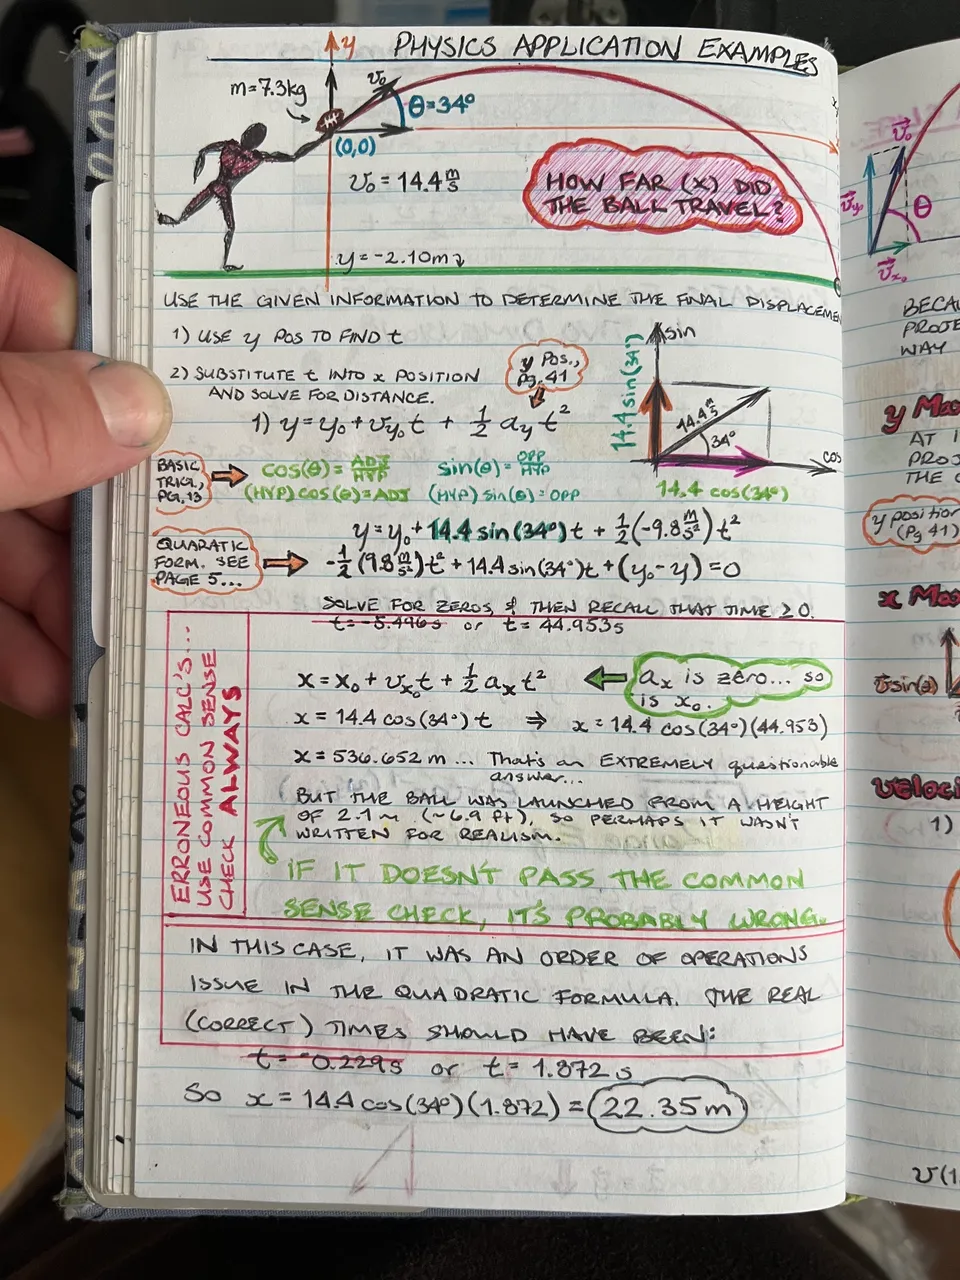 PHYSICS APPLICATION EXAMPLES
y
m=7.3kg
v₀
θ=34°
(0,0)
v₀ = 14.4 m/s
HOW FAR (x) DID
THE BALL TRAVEL?
y=-2.10m
USE THE GIVEN INFORMATION TO DETERMINE THE FINAL DISPLACEMEN
1) USE y POS TO FIND t
2) SUBSTITUTE t INTO x POSITION
AND SOLVE FOR DISTANCE.
y POS.,
Pg. 41
1) y = y₀ + v_y₀ t + 1/2 a_y t²
sin
14.4 sin(34°)
14.4 m/s
34°
cos
14.4 cos(34°)
BASIC
TRIG,
PG. 13
cos(θ) = ADJ/HYP
sin(θ) = OPP/HYP
(HYP) cos(θ) = ADJ
(HYP) sin(θ) = OPP
y = y₀ + 14.4 sin(34°) t + 1/2 (-9.8 m/s²) t²
QUARATIC
FORM. SEE
PAGE 5...
-1/2 (9.8 m/s²) t² + 14.4 sin(34°) t + (y₀ - y) = 0
SOLVE FOR ZEROS, & THEN RECALL THAT TIME ≥ 0.
t = -5.496 s or t = 44.953 s
ERRONEOUS CALC'S...
USE COMMON SENSE
CHECK ALWAYS
x = x₀ + v_x₀ t + 1/2 a_x t²
a_x is zero... so
is x₀.
x = 14.4 cos(34°) t ⇒ x = 14.4 cos(34°)(44.953)
x = 536.652 m ... That's an EXTREMELY questionable
answer...
BUT THE BALL WAS LAUNCHED FROM A HEIGHT
OF 2.1 m (~6.9 ft), SO PERHAPS IT WASN'T
WRITTEN FOR REALISM.
IF IT DOESN'T PASS THE COMMON
SENSE CHECK, IT'S PROBABLY WRONG.
IN THIS CASE, IT WAS AN ORDER OF OPERATIONS
ISSUE IN THE QUADRATIC FORMULA. THE REAL
(CORRECT) TIMES SHOULD HAVE BEEN:
t = -0.229 s or t = 1.872 s
SO x = 14.4 cos(34°)(1.872) = 22.35 m
v₀
v_y₀
θ
v_x₀
BECA
PROJE
WAY
y Ma
AT
PROJ
THE
y position
(Pg 41)
x Max
v sin(θ)
veloci
1)
v(1.